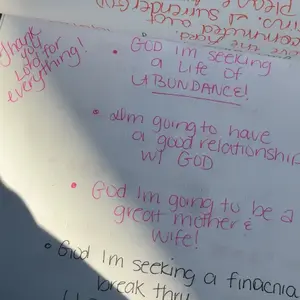 Thank
you
Lord for
everything!
• GOD Im seeking
a Life of
ABUNDANCE!
• Im going to have
a good relationship
w/ GOD
• God Im going to be a
great mother &
wife!
• God Im seeking a finacnia
break thru